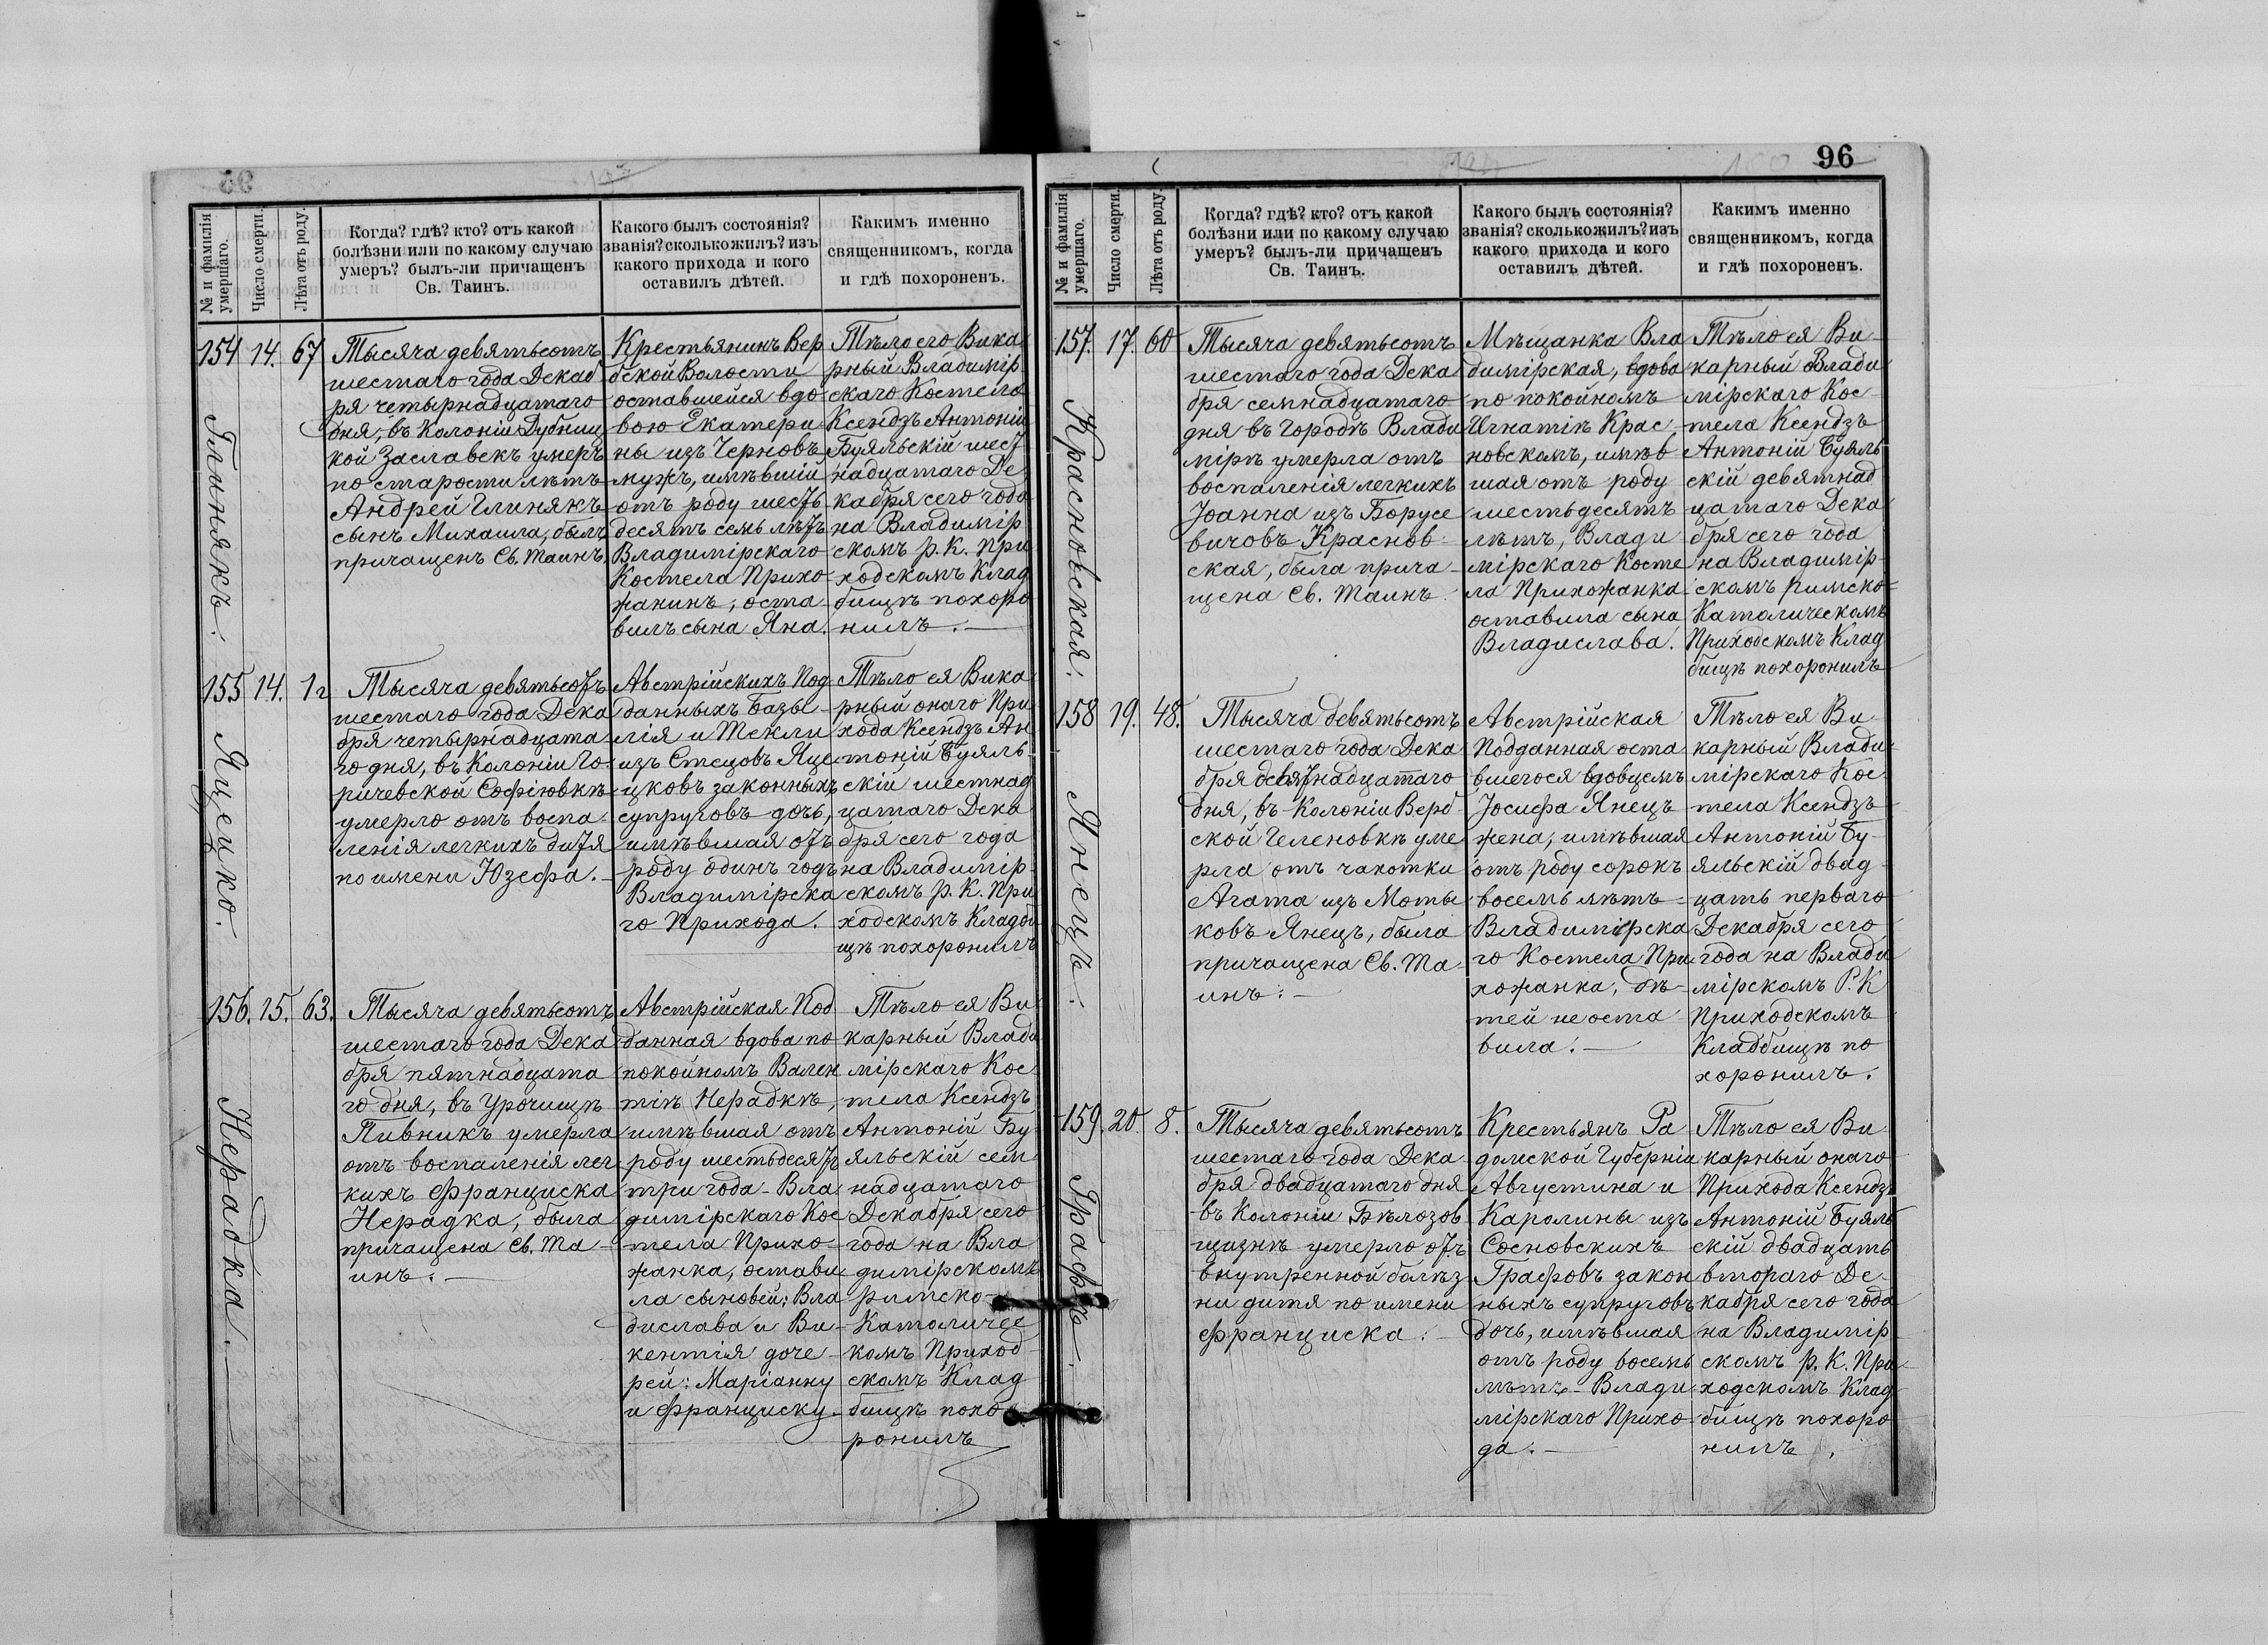 96
№ и фамилія умершаго.
Число смерти.
Лѣта отъ роду.
Когда? гдѣ? кто? отъ какой
болѣзни или по какому случаю
умеръ? былъ-ли причащенъ
Св. Таинъ.
Какого былъ состоянія?
званія? сколько жилъ? изъ
какого прихода и кого
оставилъ дѣтей.
Какимъ именно
священникомъ, когда
и гдѣ похороненъ.
154
Глинякъ.
14.
67
Тысяча девятьсотъ
шестаго года Декаб
ря четырнадцатаго
дня, въ Колоніи Дубниц
кой Заславекъ умеръ
по старости лѣтъ
Андрей Глинякъ
сынъ Михаила, былъ
причащенъ Св. Таинъ.
Крестьянинъ Вер
бской Волости
оставшейся вдо
вою Екатери
ны изъ Черновъ
мужъ, имѣвшій
отъ роду шесть
десятъ семь лѣтъ
Владимірскаго
Костела Прихо
жанинъ, оста
вилъ сына Яна.
Тѣло его Вика
рный Владимір
скаго Костела
Ксендзъ Антоній
Буяльскій шест
надцатаго Де
кабря сего года
на Владимір
скомъ р. К. При
ходскомъ Клад
бищѣ похоро
нилъ.
155
Яцейко.
14.
1 г
Тысяча девятьсотъ
шестаго года Дека
бря четырнадцата
го дня, въ Колоніи Го
ричевской Софіювкѣ
умерло отъ воспа
ленія легкихъ дитя
по имени Юзефа.
Австрійскихъ Под
данныхъ Базы
лія и Текли
изъ Стецовъ Яце
цковъ законныхъ
супруговъ дочь,
имѣвшая отъ
роду одинъ годъ
Владимірска
го Прихода.
Тѣло ея Вика
рный онаго При
хода Ксендзъ Ан
тоній Буяль
скій шестнад
цатаго Дека
бря сего года
на Владимір
скомъ р. К. При
ходскомъ Кладби
щѣ похоронилъ
156.
Нерадка.
15.
63.
Тысяча девятьсотъ
шестаго года Дека
бря пятнадцата
го дня, въ Урочищѣ
Пивникъ умерла
отъ воспаленія лег
кихъ Франциска
Нерадка, была
причащена Св. Та
инъ.
Австрійская Под
данная вдова по
покойномъ Вален
тіѣ Нерадкѣ,
имѣвшая отъ
роду шестьдесятъ
три года Вла
димірскаго Кос
тела Прихо
жанка, остави
ла сыновей: Вла
дислава и Ви
кентія доче
рей: Маріанну
и Франциску.
Тѣло ея Ви
карный Влади
мірскаго Кос
тела Ксендзъ
Антоній Бу
яльскій сем
надцатаго
Декабря сего
года на Вла
димірскомъ
римско-
Католичес
комъ Приход
скомъ Клад
бищѣ похо
ронилъ
№ и фамилія умершаго.
Число смерти.
Лѣта отъ роду.
Когда? гдѣ? кто? отъ какой
болѣзни или по какому случаю
умеръ? былъ-ли причащенъ
Св. Таинъ.
Какого былъ состоянія?
званія? сколько жилъ? изъ
какого прихода и кого
оставилъ дѣтей.
Какимъ именно
священникомъ, когда
и гдѣ похороненъ.
157.
Красновская.
17.
60
Тысяча девятьсотъ
шестаго года Дека
бря семнадцатаго
дня въ Городѣ Влади
мірѣ умерла отъ
воспаленія легкихъ
Іоанна изъ Борусе
вичовъ Краснов
ская, была прича
щена Св. Таинъ.
Мѣщанка Вла
димірская, вдова
по покойномъ
Игнатіѣ Крас
новскомъ, имѣв
шая отъ роду
шестьдесятъ
лѣтъ, Влади
мірскаго Косте
ла Прихожанка
оставила сына
Владислава.
Тѣло ея Ви
карный Влади
мірскаго Кос
тела Ксендзъ
Антоній Буяль
скій девятнад
цатаго Дека
бря сего года
на Владимір
скомъ Римско-
Католическомъ
Приходскомъ Клад
бищѣ похоронилъ
158
Янецъ.
19.
48.
Тысяча девятьсотъ
шестаго года Дека
бря девятнадцатаго
дня, въ Колоніи Верб
ской Геленовкѣ уме
рла отъ чахотки
Агата изъ Моты
ковъ Янецъ, была
причащена Св. Та
инъ.
Австрійская
Подданная оста
вшегося вдовцемъ
Іосифа Янецъ
жена, имѣвшая
отъ роду сорокъ
восемь лѣтъ
Владимірска
го Костела При
хожанка, дѣ
тей не оста
вила.
Тѣло ея Ви
карный Влади
мірскаго Кос
тела Ксендзъ
Антоній Бу
яльскій двад
цать перваго
Декабря сего
года на Влади
мірскомъ Р. К
Приходскомъ
Кладбищѣ по
хоронилъ.
159.
Графъ.
20.
8.
Тысяча девятьсотъ
шестаго года Дека
бря двадцатаго дня
въ Колоніи Бѣлозов
щизнѣ умерло отъ
внутренной болѣз
ни дитя по имени
Франциска.
Крестьянъ Ра
домской Губерніи
Августина и
Каролины изъ
Сосновскихъ
Графовъ закон
ныхъ супруговъ
дочь, имѣвшая
отъ роду восемь
лѣтъ Влади
мірскаго Прихо
да.
Тѣло ея Ви
карный онаго
Прихода Ксендзъ
Антоній Буяль
скій двадцать
втораго Де
кабря сего года
на Владимір
скомъ р. К. При
ходскомъ Клад
бищѣ похоро
нилъ.